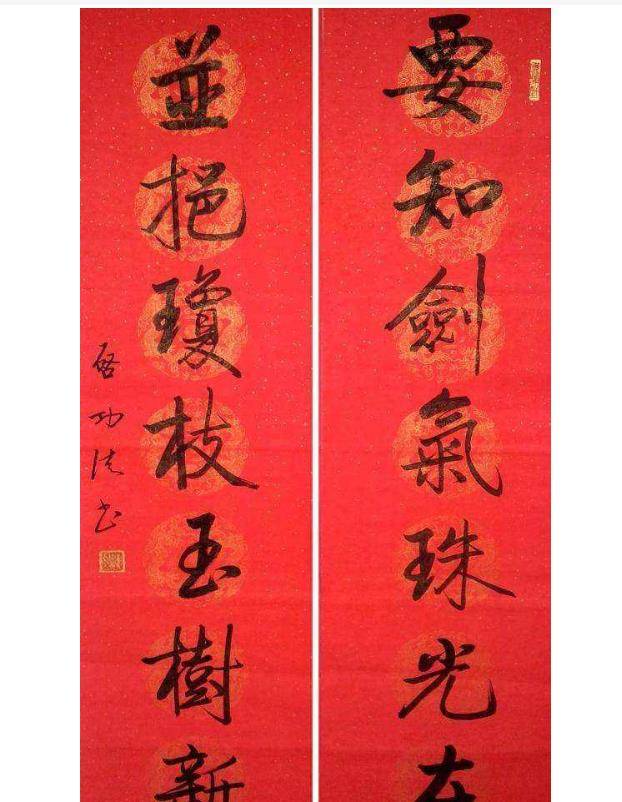 要知劍氣珠光在
並挹瓊枝玉樹新
啟功法書